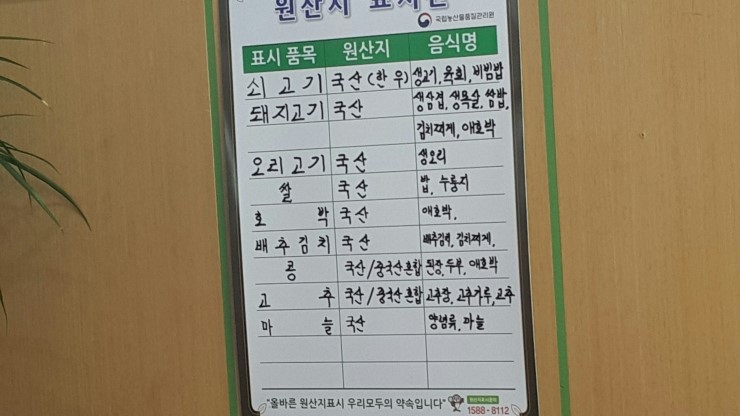 원산지 표시판
국립농산물품질관리원
표시 품목 원산지 음식명
쇠고기 국산(한우) 생고기, 육회, 비빔밥
돼지고기 국산 생삼겹, 생목살, 쌈밥,
김치찌게, 애호박
오리고기 국산 생오리
쌀 국산 밥, 누룽지
호박 국산 애호박,
배추김치 국산 배추김치, 김치찌게,
콩 국산/중국산혼합 된장, 두부, 애호박
고추 국산/중국산혼합 고추장, 고추가루, 고추
마늘 국산 양념류, 마늘
"올바른 원산지표시 우리모두의 약속입니다"
1588-8112